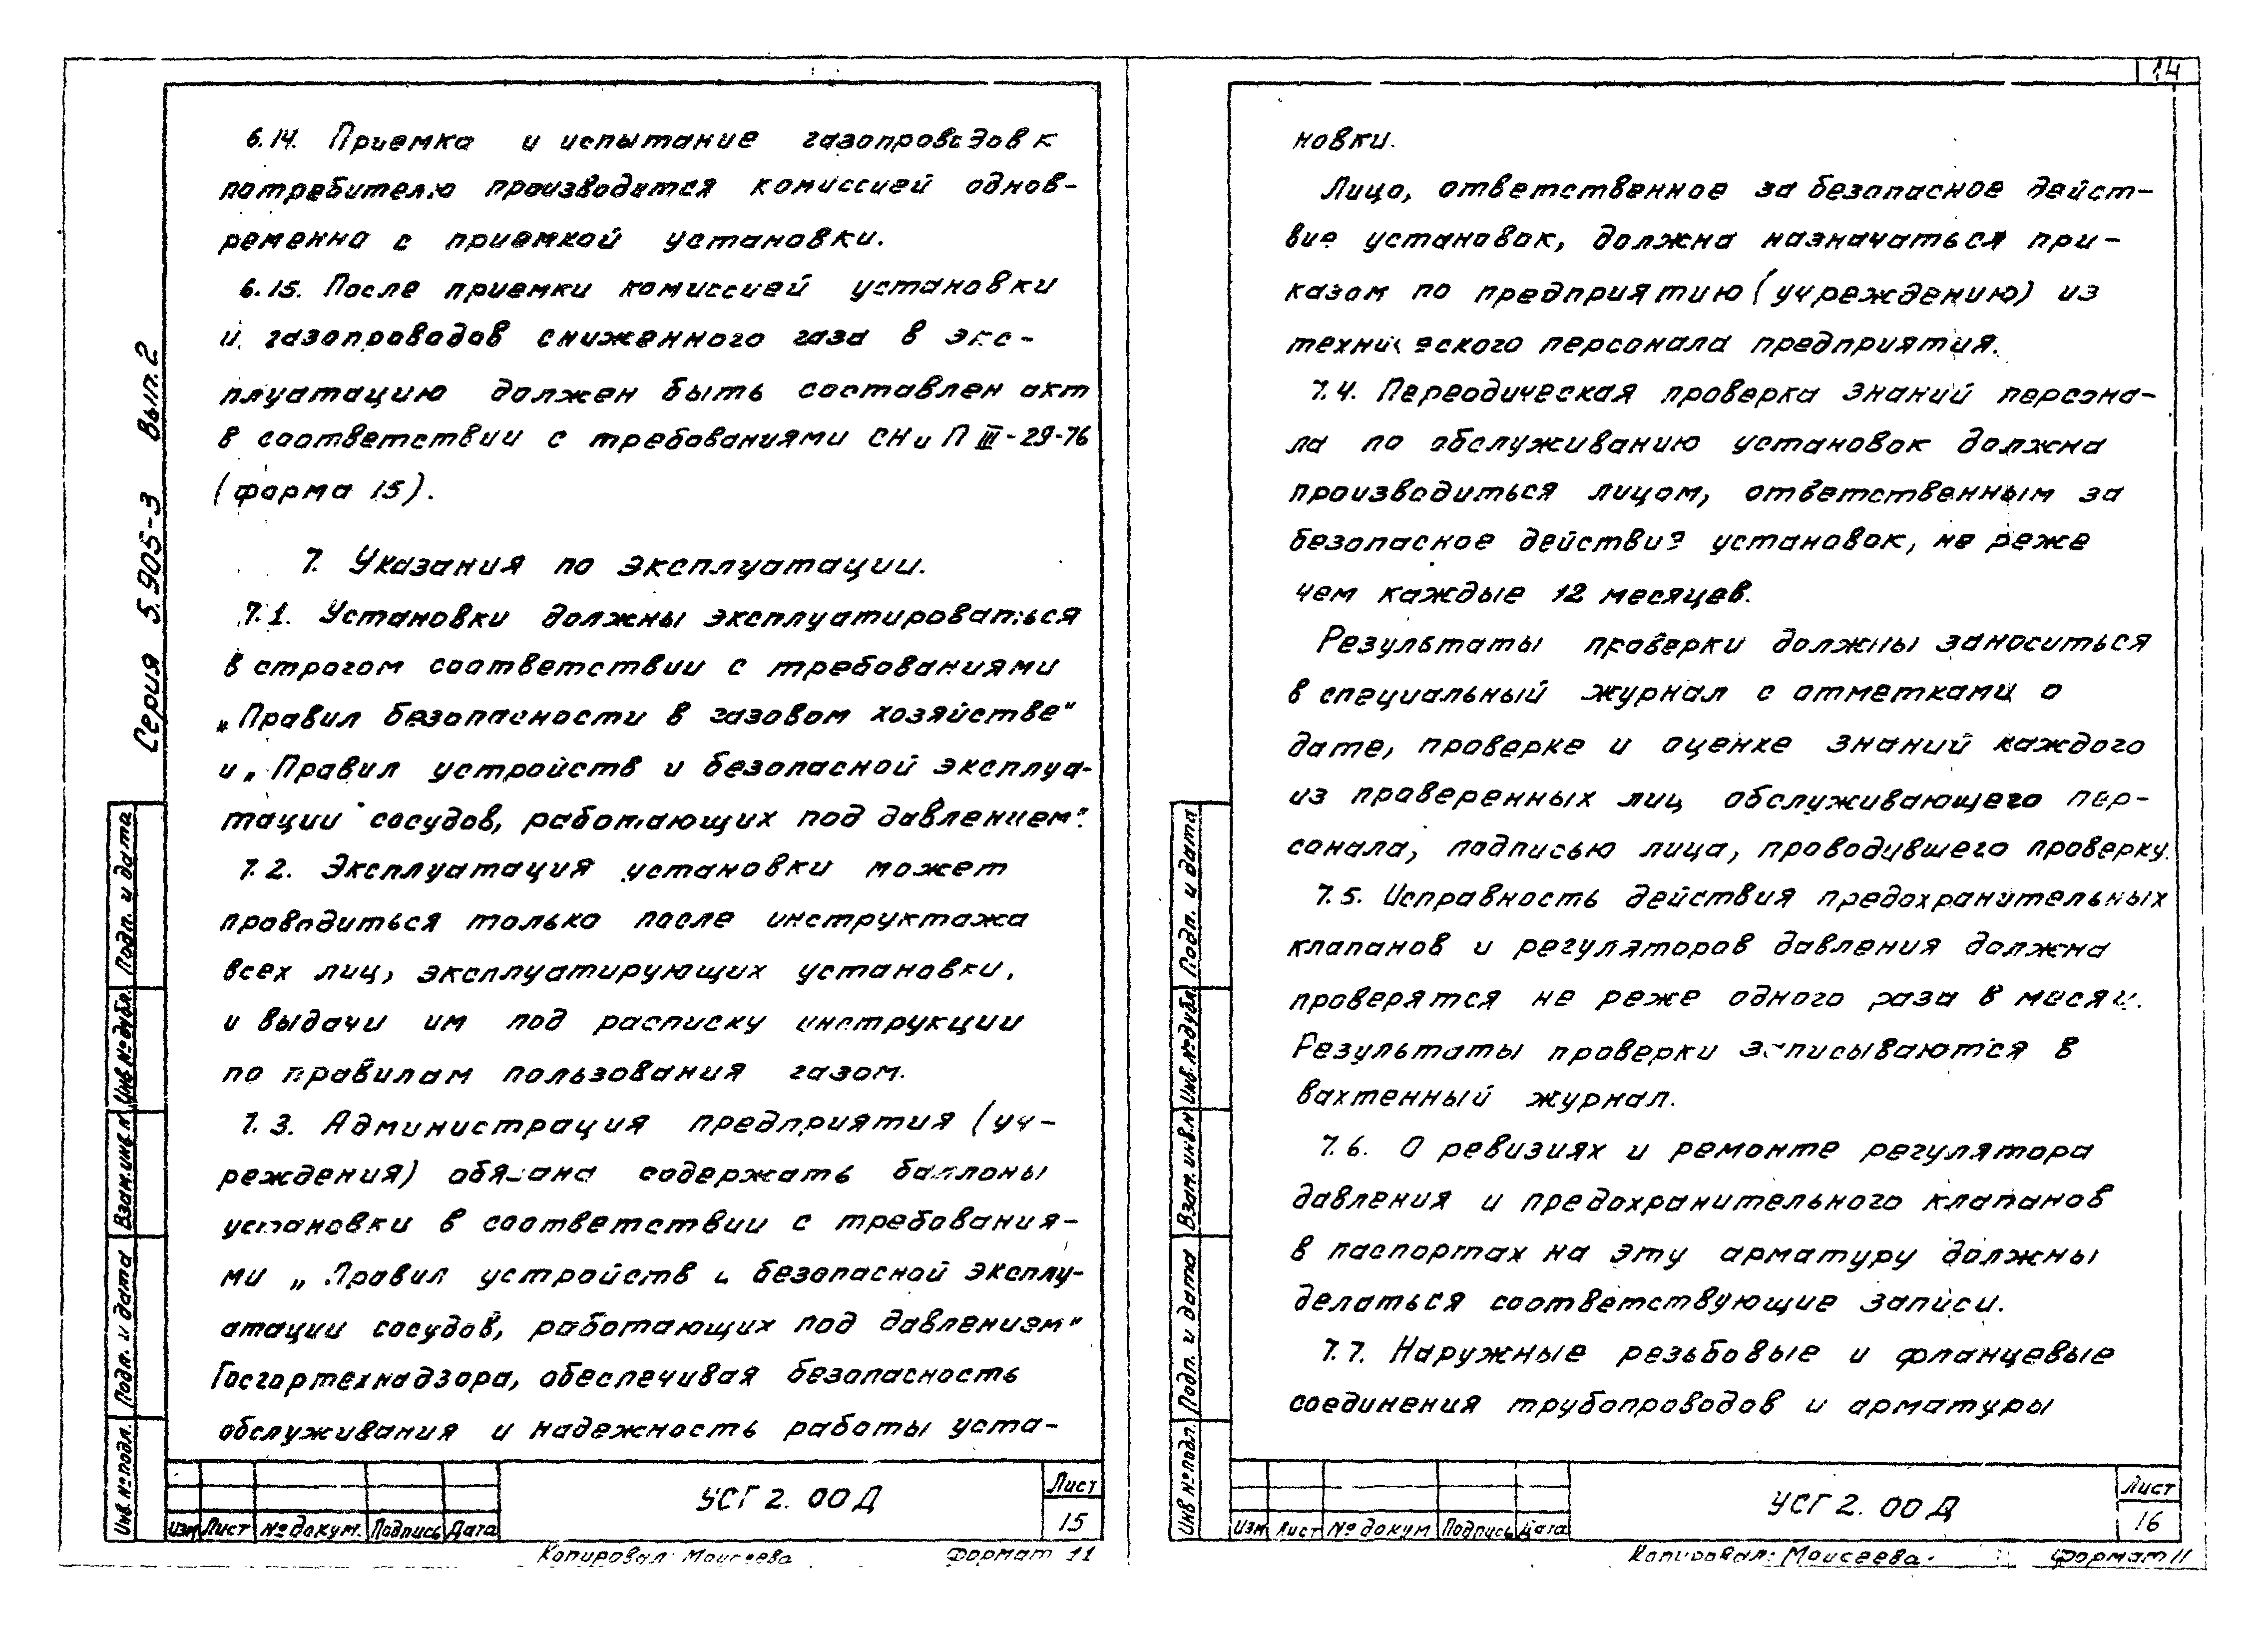 14
Серия 5.905-3 Вып.2
6.14. Приемка и испытание газопроводов к
потребителю производится комиссией однов-
ременна с приемкой установки.
6.15. После приемки комиссией установки
и газопроводов сниженного газа в экс-
плуатацию должен быть составлен акт
в соответствии с требованиями СНиП III-29-76
(форма 15).
7. Указания по эксплуатации.
7.1. Установки должны эксплуатироваться
в строгом соответствии с требованиями
„Правил безопасности в газовом хозяйстве"
и „Правил устройств и безопасной эксплуа-
тации сосудов, работающих под давлением".
7.2. Эксплуатация установки может
проводиться только после инструктажа
всех лиц, эксплуатирующих установки,
и выдачи им под расписку инструкции
по правилам пользования газом.
7.3. Администрация предприятия (уч-
реждения) обязана содержать баллоны
установки в соответствии с требования-
ми „Правил устройств и безопасной эксплу-
атации сосудов, работающих под давлением"
Госгортехнадзора, обеспечивая безопасность
обслуживания и надежность работы уста-
Подп. и дата
Инв №дубл.
Взам.инв.№
Подп. и дата
Инв.№подл.
Изм Лист №докум. Подпись Дата
УСГ 2.00Д
Лист
15
Копировал: Моисеева Формат 11
новки.
Лицо, ответственное за безопасное дейст-
вие установок, должна назначаться при-
казом по предприятию (учреждению) из
технического персонала предприятия.
7.4. Переодическая проверка знаний персона-
ла по обслуживанию установок должна
производиться лицом, ответственным за
безопасное действие установок, не реже
чем каждые 12 месяцев.
Результаты проверки должны заноситься
в специальный журнал с отметками о
дате, проверке и оценке знаний каждого
из проверенных лиц обслуживающего пер-
сонала, подписью лица, проводившего проверку.
7.5. Исправность действия предохранительных
клапанов и регуляторов давления должна
проверятся не реже одного раза в месяц.
Результаты проверки записываются в
вахтенный журнал.
7.6. О ревизиях и ремонте регулятора
давления и предохранительного клапанов
в паспортах на эту арматуру должны
делаться соответствующие записи.
7.7. Наружные резьбовые и фланцевые
соединения трубопроводов и арматуры
Подп. и дата
Инв.№дубл.
Взам.инв.№
Подп. и дата
Инв №подл.
Изм Лист №докум Подпись Дата
УСГ 2.00Д
Лист
16
Копировал: Моисеева Формат 11